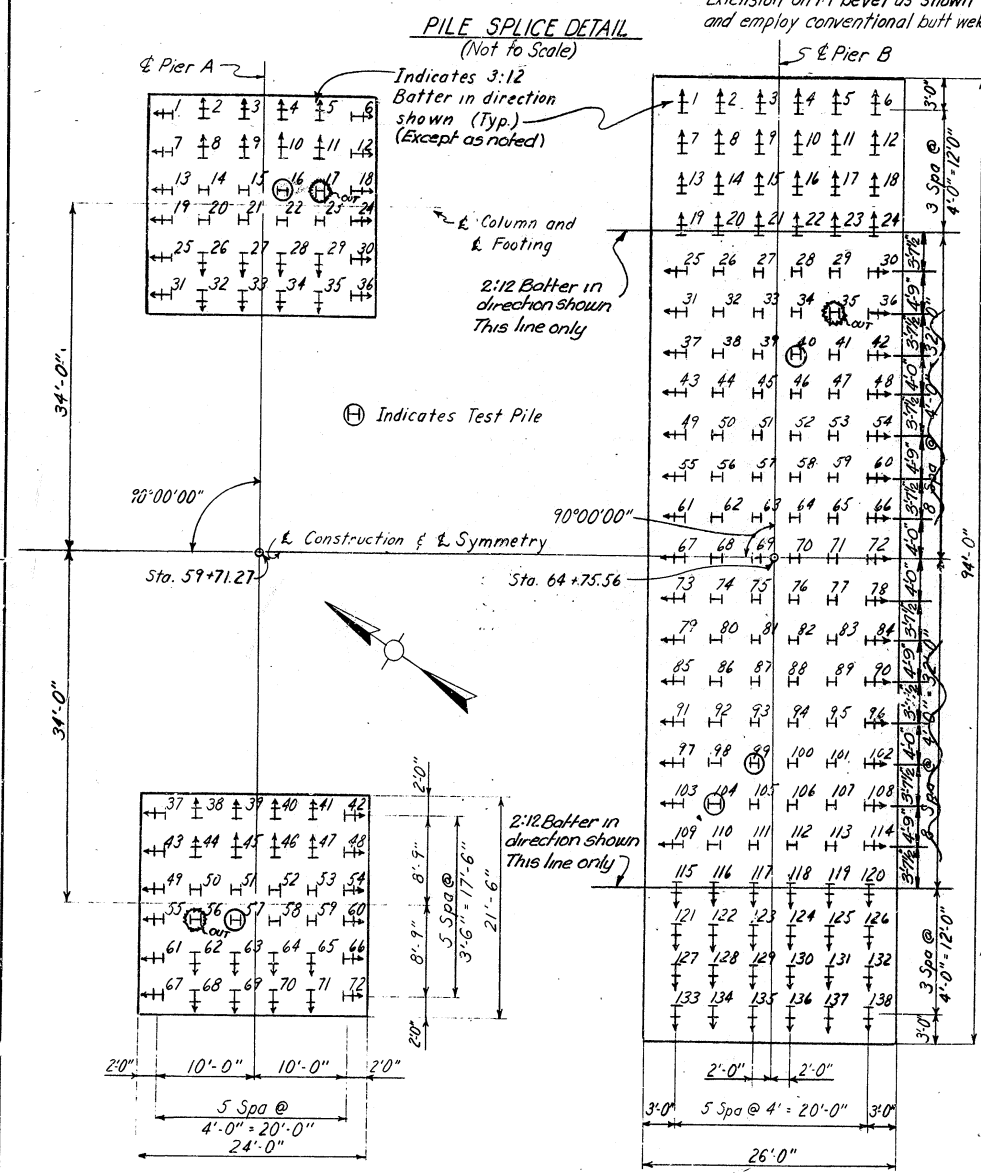 Extension on 1:1 bevel as shown
and employ conventional butt weld
PILE SPLICE DETAIL
(Not to Scale)
℄ Pier A
Indicates 3:12
Batter in direction
shown (Typ.)
(Except as noted)
℄ Pier B
1 2 3 4 5 6
7 8 9 10 11 12
13 14 15 16 17 18
OUT
19 20 21 22 23 24
25 26 27 28 29 30
31 32 33 34 35 36
℄ Column and
℄ Footing
2:12 Batter in
direction shown
This line only
34'-0"
H Indicates Test Pile
90°00'00"
℄ Construction & ℄ Symmetry
Sta. 59+71.27
34'-0"
37 38 39 40 41 42
43 44 45 46 47 48
49 50 51 52 53 54
55 56 57 58 59 60
OUT
61 62 63 64 65 66
67 68 69 70 71 72
2'-0"
8'-9"
8'-9"
2'0"
5 Spa @
3'-6" = 17'-6"
21'-6"
2'0" 10'-0" 10'-0" 2'0"
5 Spa @
4'-0" = 20'-0"
24'-0"
1 2 3 4 5 6
7 8 9 10 11 12
13 14 15 16 17 18
19 20 21 22 23 24
25 26 27 28 29 30
31 32 33 34 35 36
OUT
37 38 39 40 41 42
43 44 45 46 47 48
49 50 51 52 53 54
55 56 57 58 59 60
61 62 63 64 65 66
90°00'00"
67 68 69 70 71 72
Sta. 64+75.56
73 74 75 76 77 78
79 80 81 82 83 84
85 86 87 88 89 90
91 92 93 94 95 96
97 98 99 100 101 102
103 104 105 106 107 108
109 110 111 112 113 114
2:12 Batter in
direction shown
This line only
115 116 117 118 119 120
121 122 123 124 125 126
127 128 129 130 131 132
133 134 135 136 137 138
3'-0"
3 Spa @
4'-0" = 12'-0"
3'-7½"
4'-9"
3'-7½"
4'-0"
3'-7½"
4'-9"
3'-7½"
4'-0"
8 Spa @ 4'-0" = 32'-0"
4'-0"
3'-7½"
4'-9"
3'-7½"
4'-0"
3'-7½"
4'-9"
3'-7½"
8 Spa @ 4'-0" = 32'-0"
3 Spa @
4'-0" = 12'-0"
3'-0"
94'-0"
2'-0" 2'-0"
3'-0" 5 Spa @ 4' = 20'-0" 3'-0"
26'-0"